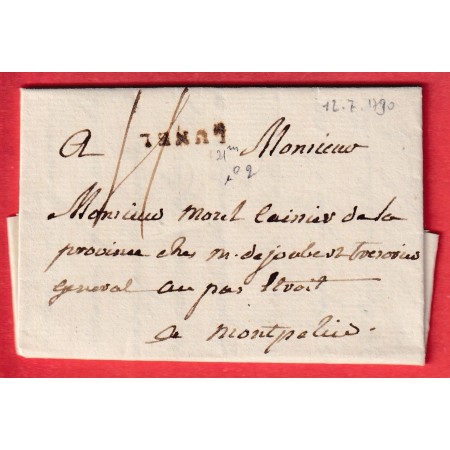 12.7.1790
LUNEL
A Monsieur
21 mm
n° 2
Monsieur morel caissier de la
province ches m. de joubert tresorier
general au pas Etroit
a montpelier.